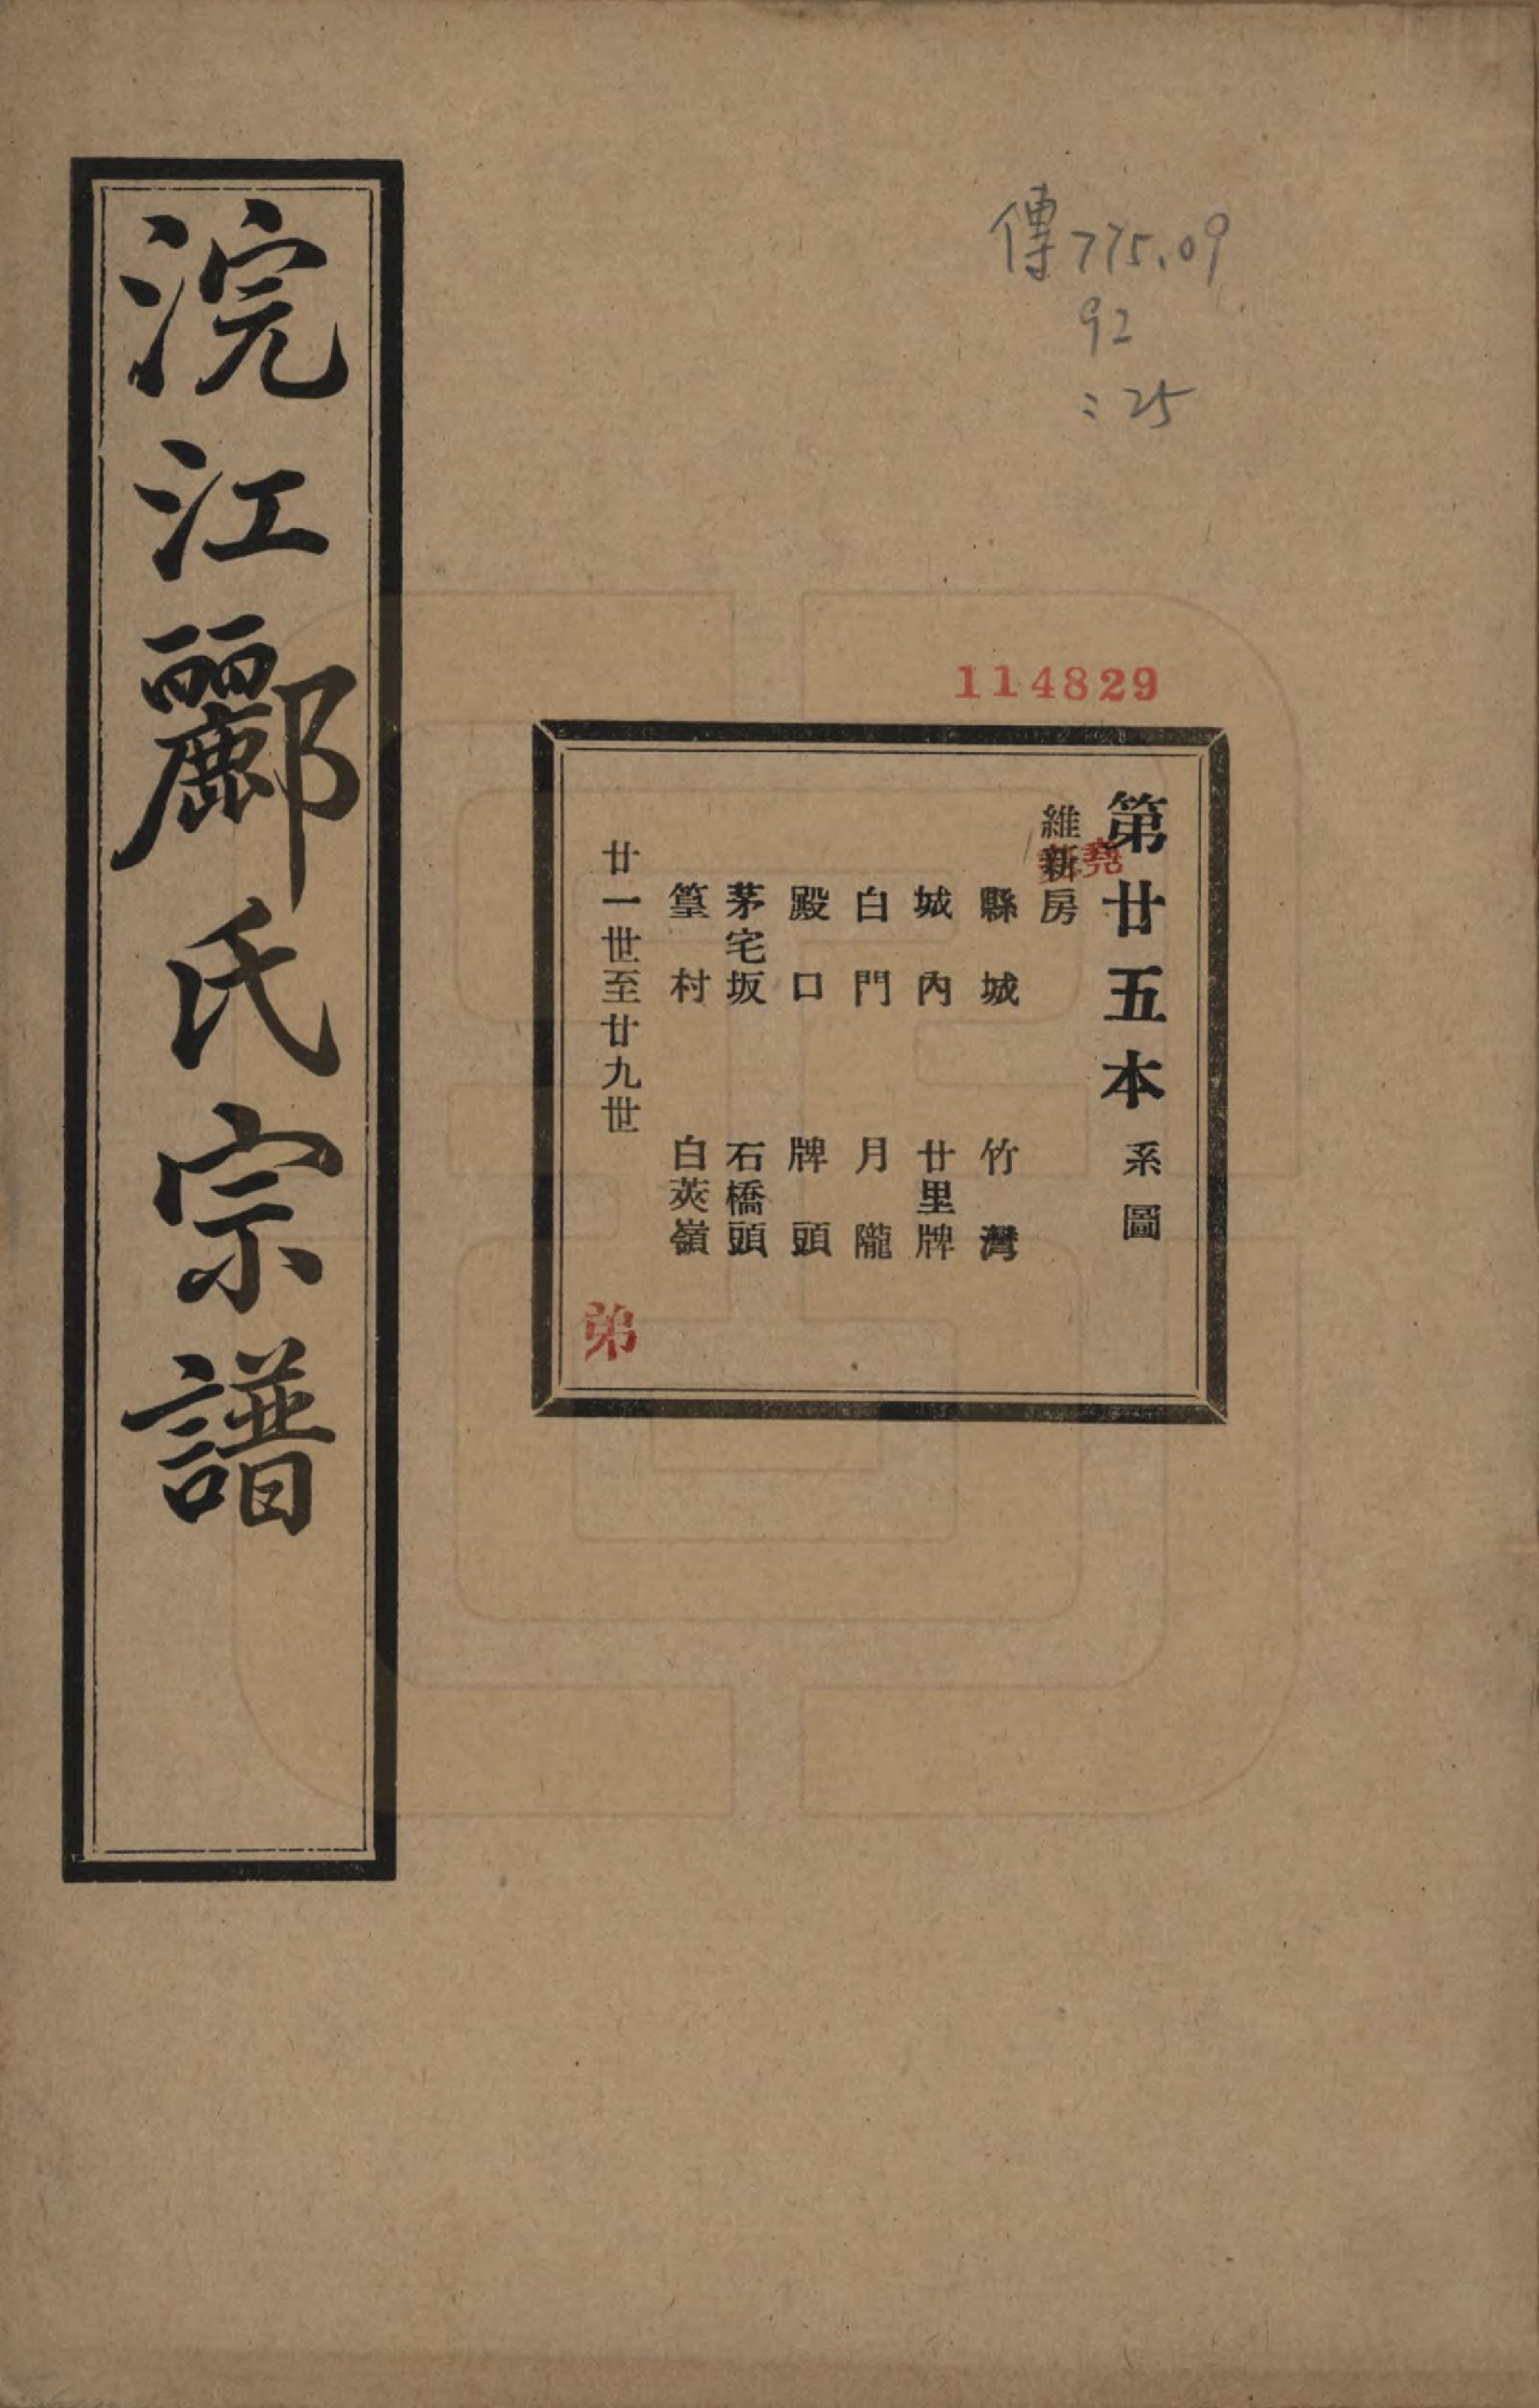 浣江酈氏宗譜
傳775.09
92
:25
114829
第廿五本 系圖
堯
維新房
縣城 竹灣
城內 廿里牌
白門 月隴
殿口 牌頭
茅宅坂 石橋頭
篁村 白莢嶺
廿一世至廿九世
弟